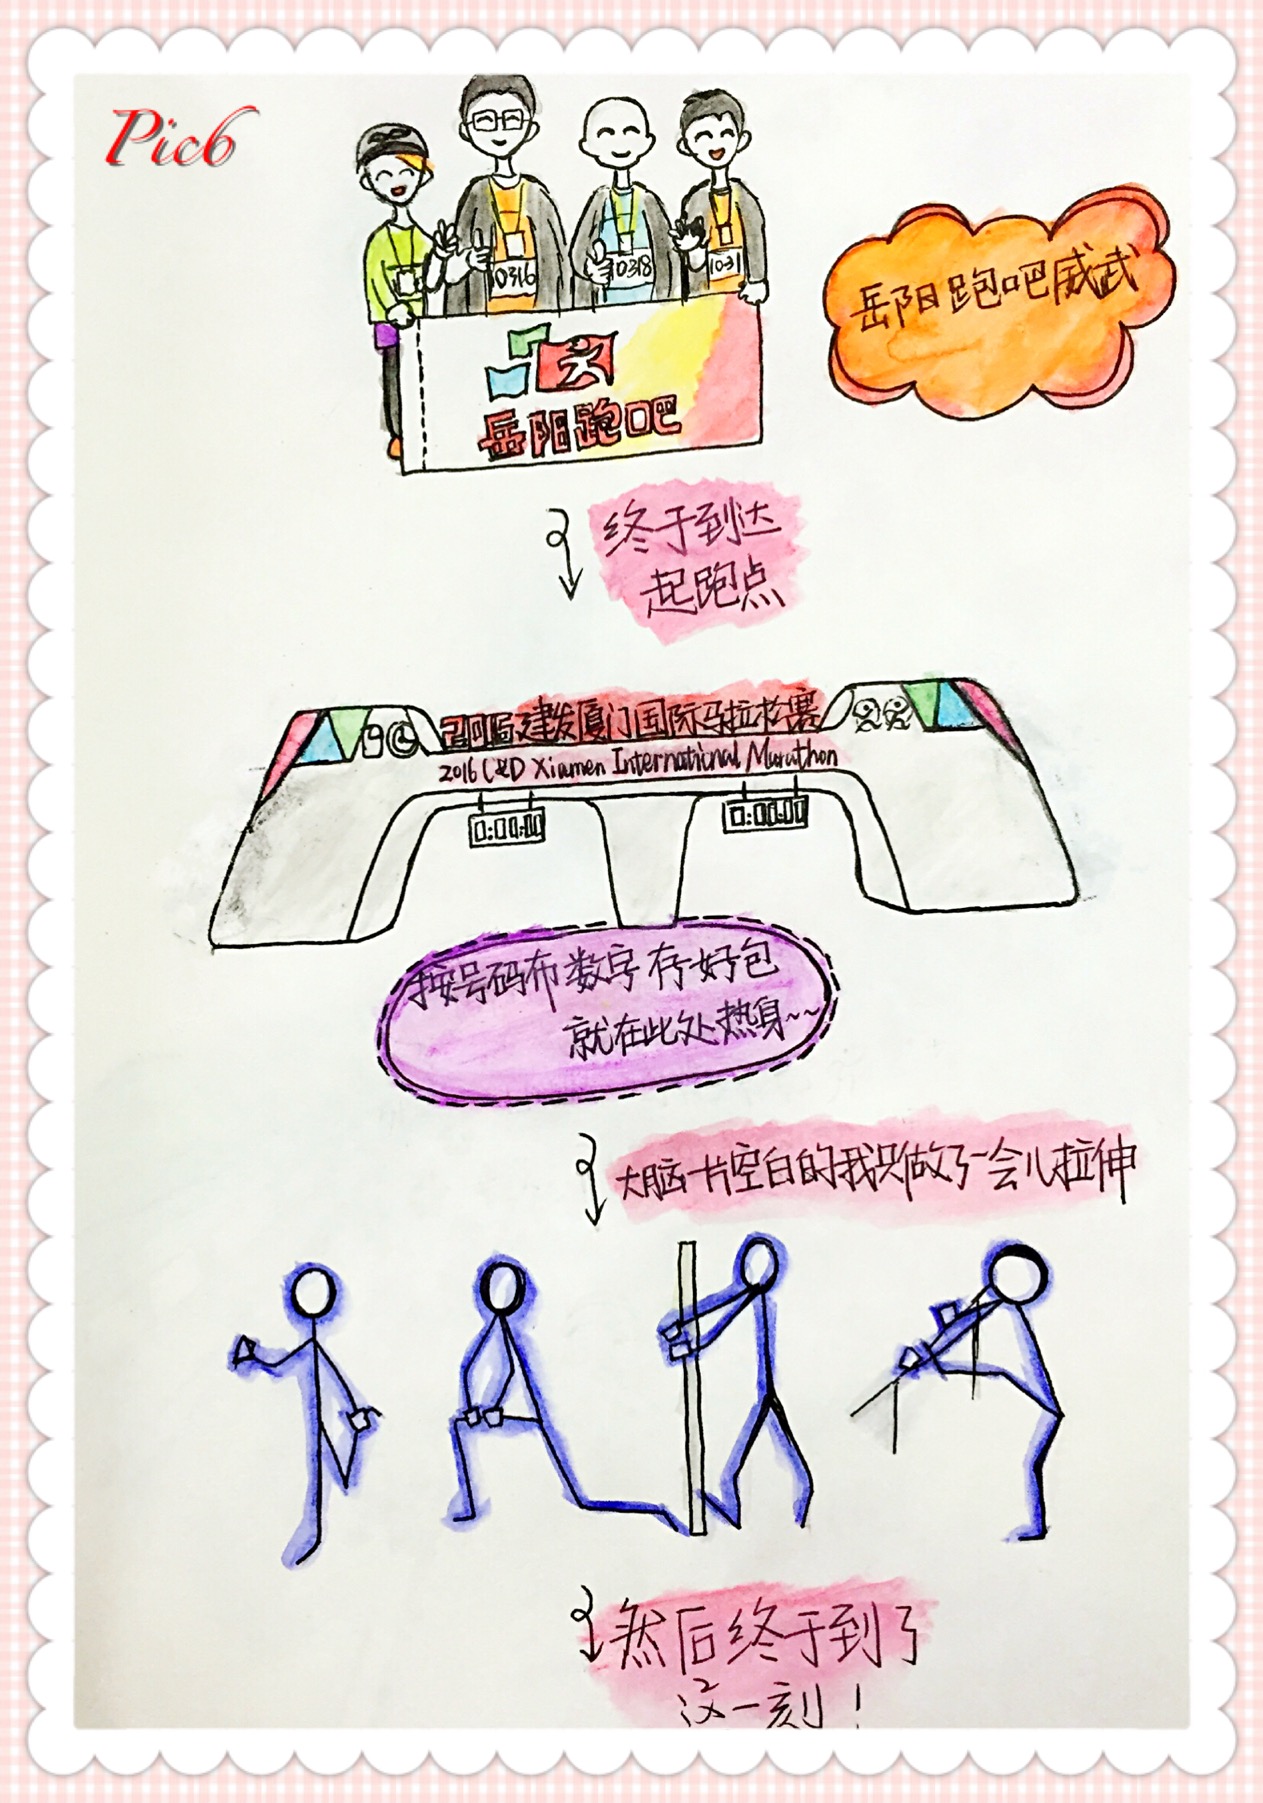 Pic6
10316
10318
1031
岳阳跑吧威武
岳阳跑吧
终于到达
起跑点
2016建发厦门国际马拉松赛
2016 C&D Xiamen International Marathon
0:00:00
0:00:00
按号码布数字存好包
就在此处热身~~
大脑一片空白的我只做了一会儿拉伸
然后终于到了
这一刻！